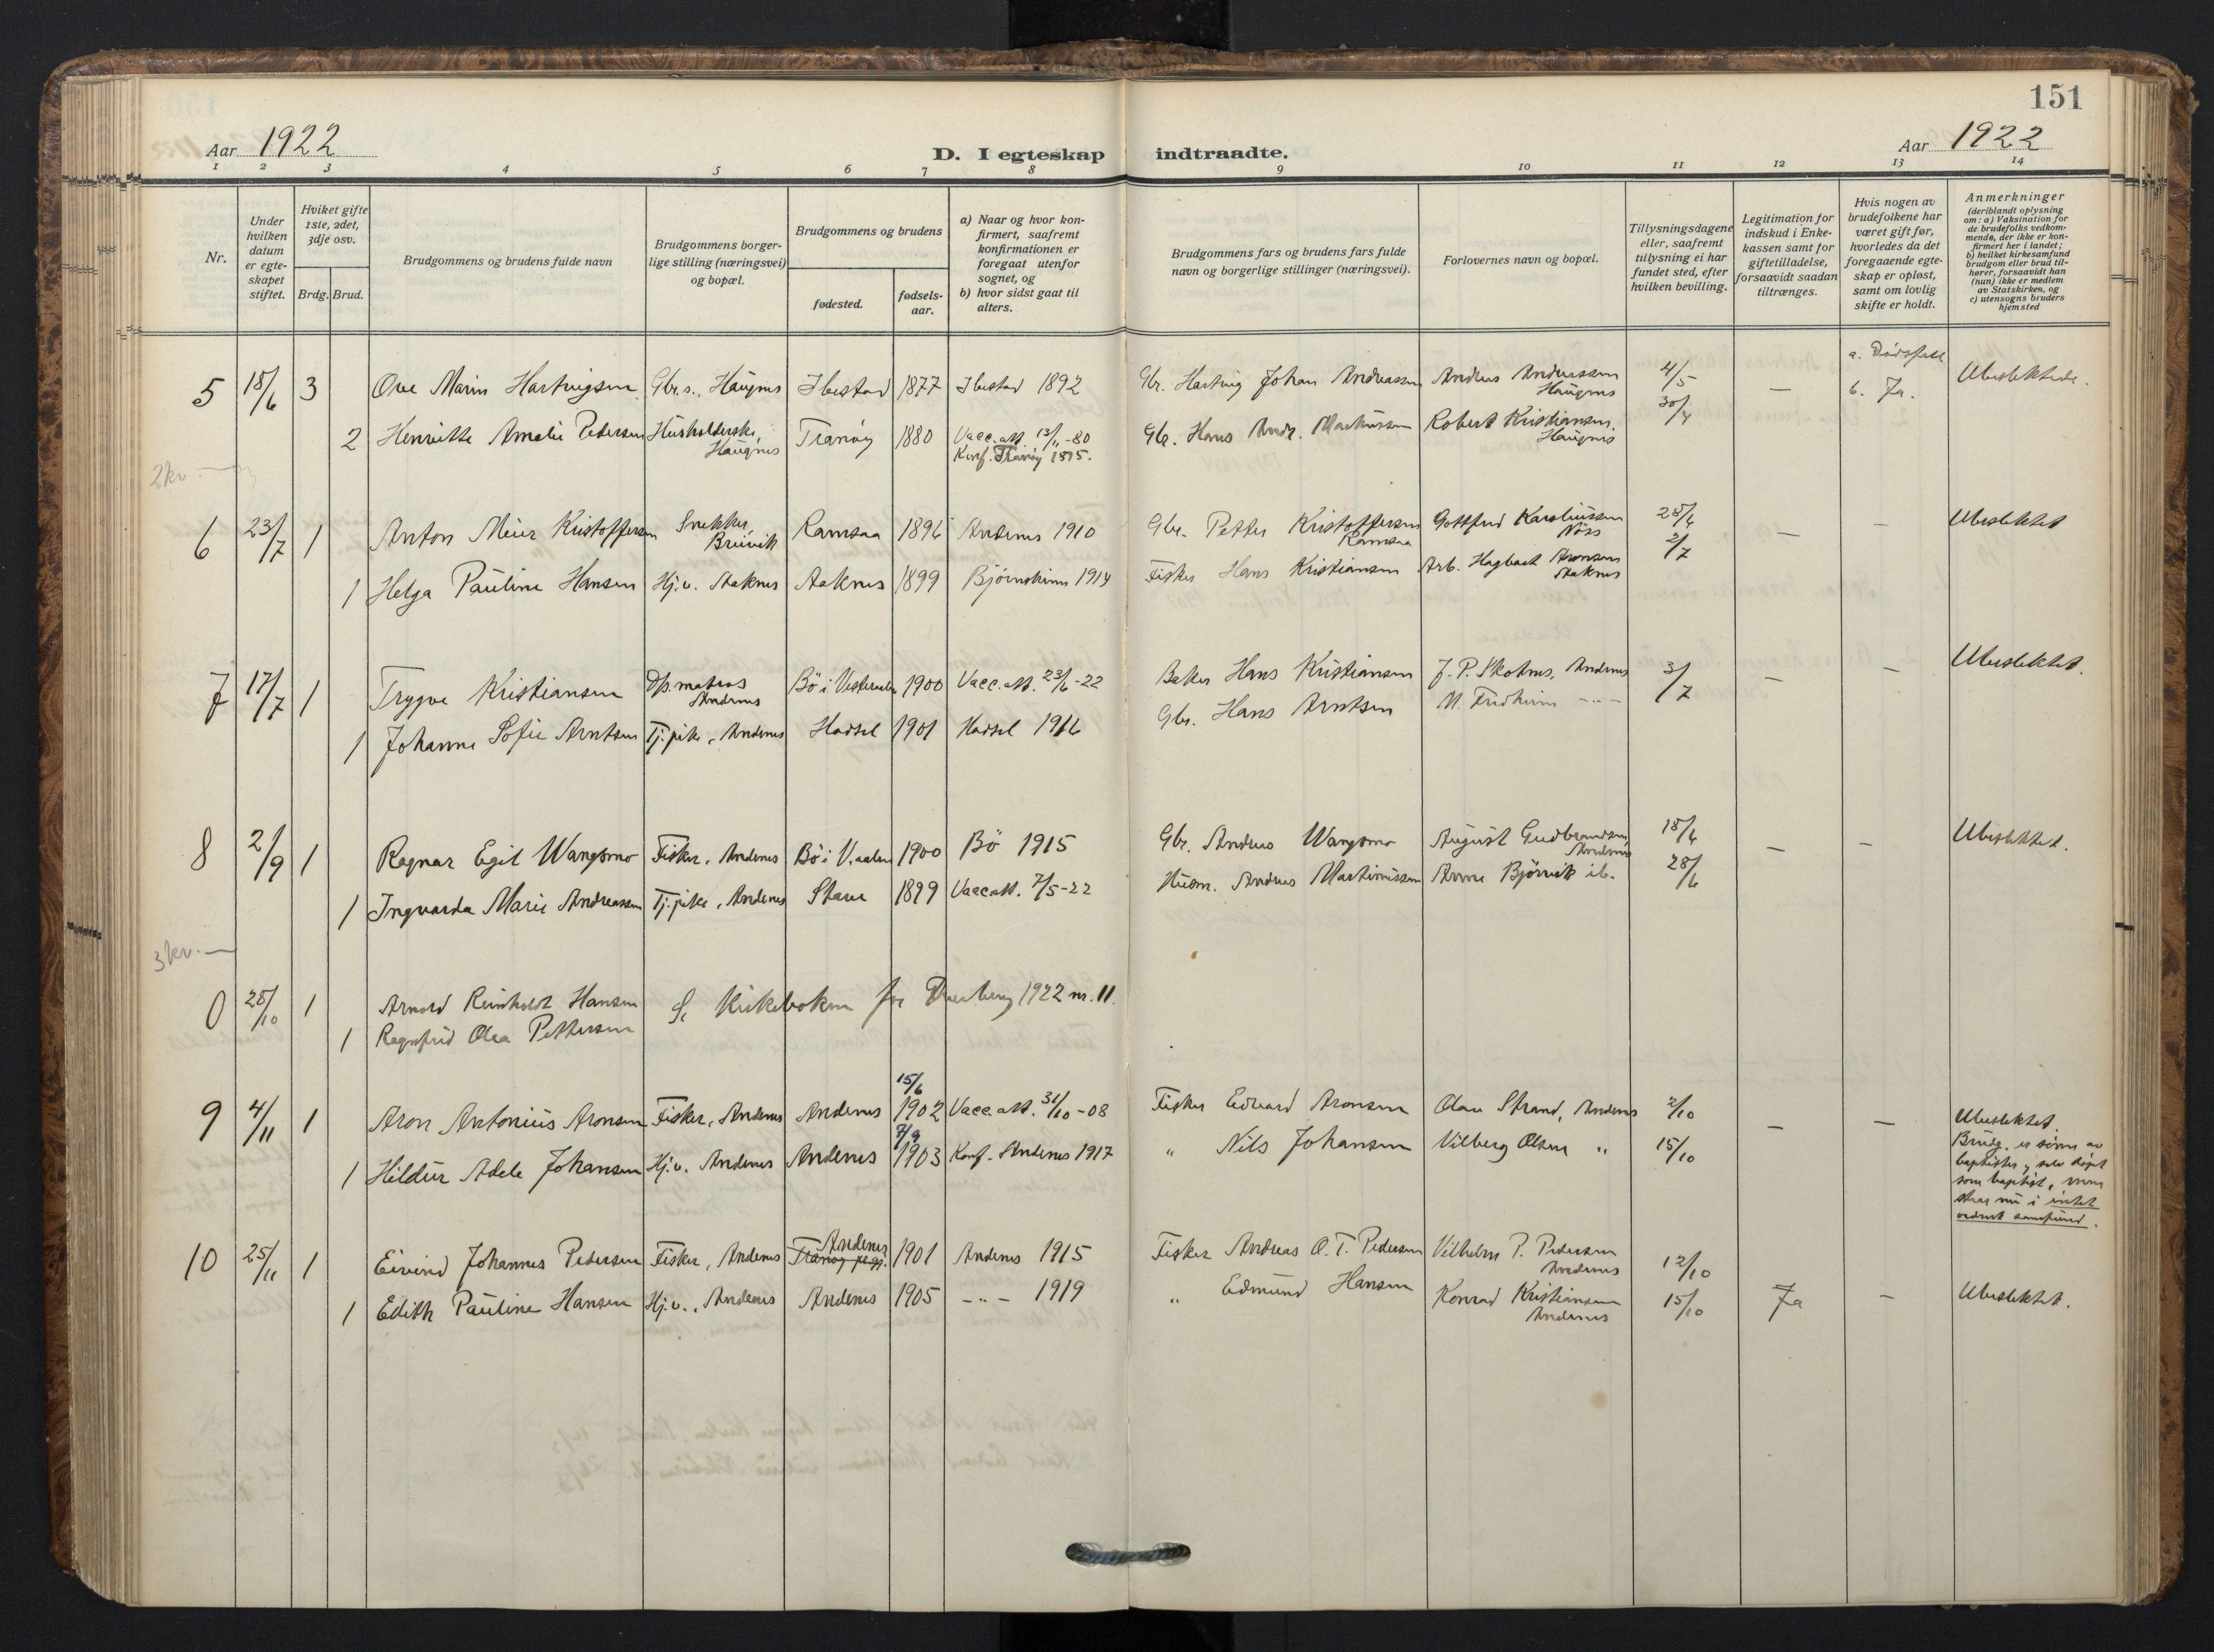 151
Aar 1922
D. I egteskap indtraadte.
Aar 1922
1 2 3 4 5 6 7 8 9 10 11 12 13 14
Nr.
Under hvilken datum er egteskapet stiftet.
Hvilket gifte 1ste, 2det, 3dje osv.
Brdg. Brud.
Brudgommens og brudens fulde navn
Brudgommens borgerlige stilling (næringsvei) og bopæl.
Brudgommens og brudens
fødested.
fødselsaar.
a) Naar og hvor konfirmert, saafremt konfirmationen er foregaat utenfor sognet, og
b) hvor sidst gaat til alters.
Brudgommens fars og brudens fars fulde navn og borgerlige stillinger (næringsvei).
Forlovernes navn og bopæl.
Tillysningsdagene eller, saafremt tillysning ei har fundet sted, efter hvilken bevilling.
Legitimation for indskud i Enkekassen samt for giftetilladelse, forsaavidt saadan tiltrænges.
Hvis nogen av brudefolkene har været gift før, hvorledes da det foregaaende egteskap er opløst, samt om lovlig skifte er holdt.
Anmerkninger
(deriblandt oplysning om: a) Vaksination for de brudefolks vedkommende, der ikke er konfirmert her i landet;
b) hvilket kirkesamfund brudgom eller brud tilhører, forsaavidt han (hun) ikke er medlem av Statskirken, og
c) utensogns bruders hjemsted
5 18/6 3 Ove Marin Hartvigsen Gbr.s., Haugnes Ibestad 1877 Ibestad 1892 Gbr. Hartvig Johan Andreassen Andreas Andreassen Haugnes 4/5 — a. Dødsfall b. Ja. Ubeslektede.
2 Henrikke Amalie Pedersen Husholderske, Haugnes Tranøy 1880 Vacc.att. 13/11-80 Konf. Tranøy 1895. Gbr. Hans Andr. Markussen Robert Kristiansen. Haugnes 30/4
2 kv. —
6 23/7 1 Anton Meier Kristoffersen Snekker, Breivik Ramsaa 1896 Andenes 1910 Gbr. Petter Kristoffersen Ramsaa Gottfred Karoliussen Nöss 28/6 — — Ubeslektet
1 Helga Pauline Hansen Hj.v. Aaknes Aaknes 1899 Bjørnskinn 1914 Fisker Hans Kristiansen Arb. Hagbart Aronsen Aaknes 2/7
7 17/7 1 Trygve Kristiansen D/s.matros Andenes Bö i Vesteraalen 1900 Vacc.att. 23/6-22 Baker Hans Kristiansen J. P. Skotnes, Andenes 3/7 — — Ubeslektet.
1 Johanne Sofie Arntsen Tj.pike, Andenes Hadsel 1901 Hadsel 1916 Gbr. Hans Arntsen N. Fredheim -"-
8 2/9 1 Ragnar Egil Wangsmo Fisker, Andenes Bö i V.aalen 1900 Bö 1915 Gbr. Andreas Wangsmo August Gudbrandsen Andenes 18/6 — — Ubeslektet.
1 Ingvarda Marie Andreassen Tj.pike, Andenes Stave 1899 Vacc.att. 7/5-22 Husm. Andreas Martinussen Arne Bjørvik ib. 28/6
3 kv. —
0 28/10 1 Arnold Reinholdt Hansen Se Kirkeboken for Dverberg 1922 nr. 11.
1 Ragnfrid Olea Pettersen
9 4/11 1 Aron Antonius Aronsen Fisker, Andenes Andenes 15/6 1902 Vacc.att. 31/10-08 Fisker Edvard Aronsen Olav Strand, Andenes 2/10 — — Ubeslektet.
1 Hildur Adele Johansen Hj.v. Andenes Andenes 7/9 1903 Konf. Andenes 1917 " Nils Johansen Vilberg Olsen " 15/10
Brudg. er sönn av baptister, selv döpt som baptist, men staar nu i intet ordnet samfund.
10 25/11 1 Eivind Johannes Pedersen Fisker, Andenes Tranøy pr.gj. Andenes 1901 Andenes 1915 Fisker Andreas O. T. Pedersen Vilhelm P. Pedersen Andenes 12/10
1 Edith Pauline Hansen Hj.v., Andenes Andenes 1905 -"- 1919 " Edmund Hansen Konrad Kristiansen Andenes 15/10 Ja — Ubeslektet.